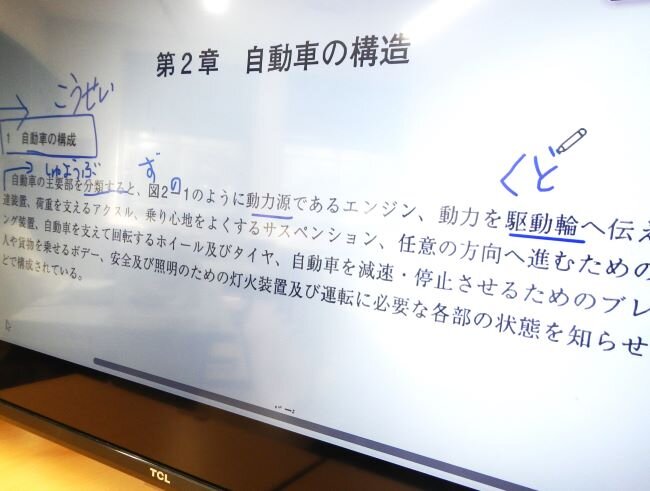 第2章 自動車の構造
こうせい
1 自動車の構成
しゅようぶ ず くど
自動車の主要部を分類すると、図2の1のように動力源であるエンジン、動力を駆動輪へ伝え
達装置、荷重を支えるアクスル、乗り心地をよくするサスペンション、任意の方向へ進むための
ング装置、自動車を支えて回転するホイール及びタイヤ、自動車を減速・停止させるためのブレ
人や貨物を乗せるボデー、安全及び照明のための灯火装置及び運転に必要な各部の状態を知らせ
どで構成されている。
TCL